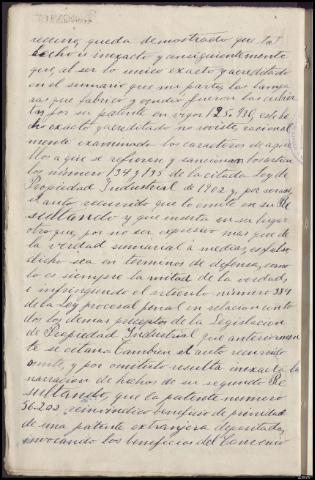 recurso, queda demostrado que tal
hecho es inexacto y consiguientemente
que, al ser lo unico exacto y acreditado
en el sumario que mi parte, las lampa
ras que fabricó y vendió fueron las cubier
tas por su patente en vigor 125.930, este he
cho exacto y acreditado no reviste, racional
mente examinado los caracteres de aque
llos a que se refieren y sancionan los articu
los número 134 y 135 de la citada Ley de
Propiedad Industrial de 1902 y, por ser así
el auto recurrido que lo omite en su Re
sultando y que inserta en su lugar
otro que, por no ser expresivo mas que de
la verdad sumarial a medias, es falso
dicho sea en terminos de defensa, como
lo es siempre la mitad de la verdad,
e infringiendo el articulo número 384
de la Ley procesal penal en relacion con to
dos los demas preceptos de la Legislacion
de Propiedad Industrial que anteriormen
te se citan. Tambien el auto recurrido
omite, y por omitirlo resulta inexacta la
narracion de hechos de su segundo Re
sultando, que la patente número
56.202 reinvindicó beneficio de prioridad
de una patente extranjera depositada,
invocando los beneficios del Convenio